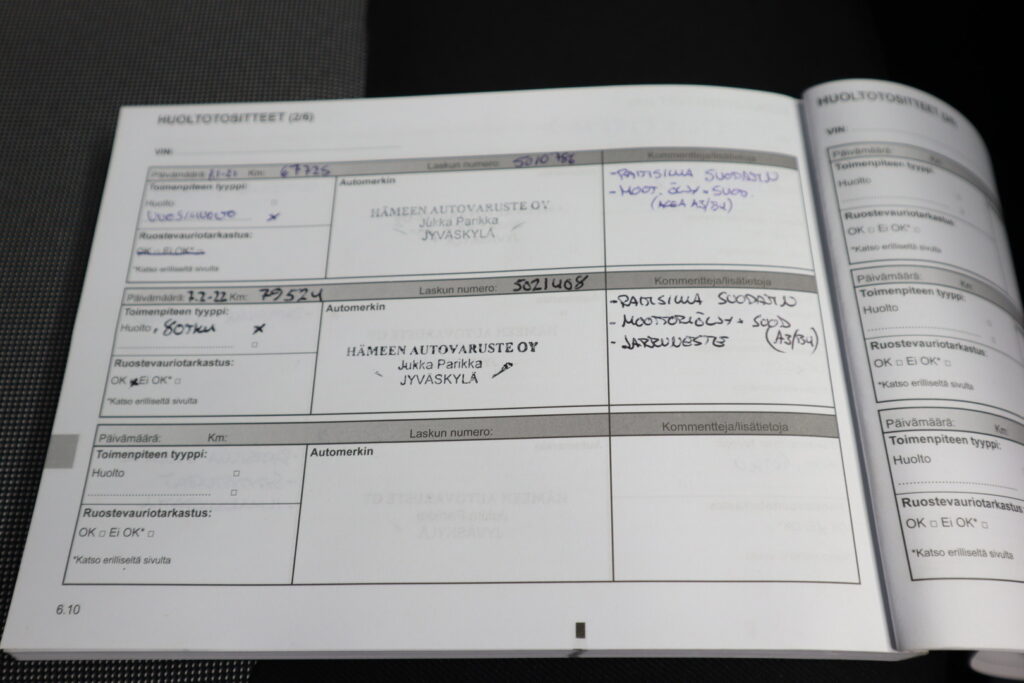 HUOLTOTOSITTEET (2/6)
VIN:
Päivämäärä: 7.1-21 Km: 67725 Laskun numero: 5010786 Kommentteja/lisätietoja
Toimenpiteen tyyppi:
Huolto
VUOSIHUOLTO x
Ruostevauriotarkastus:
OK Ei OK*
*Katso erilliseltä sivulta
Automerkin
HÄMEEN AUTOVARUSTE OY
Jukka Parikka
JYVÄSKYLÄ
-RAITISILMA SUODATIN
-MOOT. ÖLJY + SUOD.
(ACEA A3/B4)
Päivämäärä: 7.2-22 Km: 79524 Laskun numero: 5021408 Kommentteja/lisätietoja
Toimenpiteen tyyppi:
Huolto 80TKM x
Ruostevauriotarkastus:
OK x Ei OK*
*Katso erilliseltä sivulta
Automerkin
HÄMEEN AUTOVARUSTE OY
Jukka Parikka
JYVÄSKYLÄ
-RAITISILMA SUODATIN
-MOOTTORIÖLJY + SUOD
(A3/B4)
-JARRUNESTE
Päivämäärä: Km: Laskun numero: Kommentteja/lisätietoja
Toimenpiteen tyyppi:
Huolto
Ruostevauriotarkastus:
OK Ei OK*
*Katso erilliseltä sivulta
Automerkin
6.10
HUOLTOTOSITTEET
VIN:
Päivämäärä: Km:
Toimenpiteen tyyppi:
Huolto
Ruostevauriotarkastus:
OK Ei OK*
*Katso erilliseltä sivulta
Päivämäärä: Km:
Toimenpiteen tyyppi:
Huolto
Ruostevauriotarkastus:
OK Ei OK*
*Katso erilliseltä sivulta
Päivämäärä: Km:
Toimenpiteen tyyppi:
Huolto
Ruostevauriotarkastus:
OK Ei OK*
*Katso erilliseltä sivulta